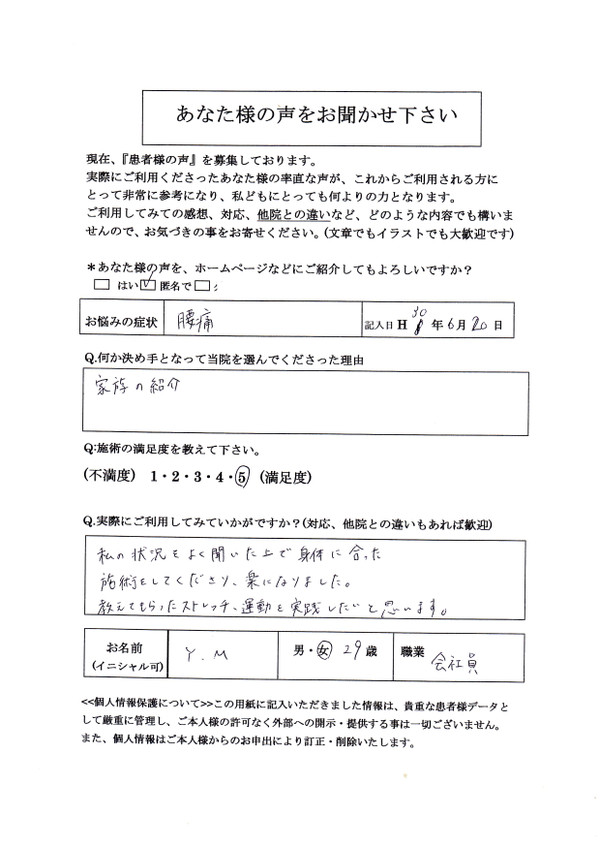 あなた様の声をお聞かせ下さい
現在、『患者様の声』を募集しております。
実際にご利用くださったあなた様の率直な声が、これからご利用される方に
とって非常に参考になり、私どもにとっても何よりの力となります。
ご利用してみての感想、対応、他院との違いなど、どのような内容でも構いま
せんので、お気づきの事をお寄せください。(文章でもイラストでも大歓迎です)
*あなた様の声を、ホームページなどにご紹介してもよろしいですか?
□ はい ☑ 匿名で □
お悩みの症状 腰痛 記入日 H 30 年 6 月 20 日
Q.何か決め手となって当院を選んでくださった理由
家族の紹介
Q:施術の満足度を教えて下さい。
(不満度) 1・2・3・4・5 (満足度)
Q.実際にご利用してみていかがですか?(対応、他院との違いもあれば歓迎)
私の状況をよく聞いた上で身体に合った
施術をしてくださり、楽になりました。
教えてもらったストレッチ、運動を実践したいと思います。
お名前 Y.M 男・女 29 歳 職業 会社員
(イニシャル可)
<<個人情報保護について>>この用紙に記入いただきました情報は、貴重な患者様データと
して厳重に管理し、ご本人様の許可なく外部への開示・提供する事は一切ございません。
また、個人情報はご本人様からのお申出により訂正・削除いたします。